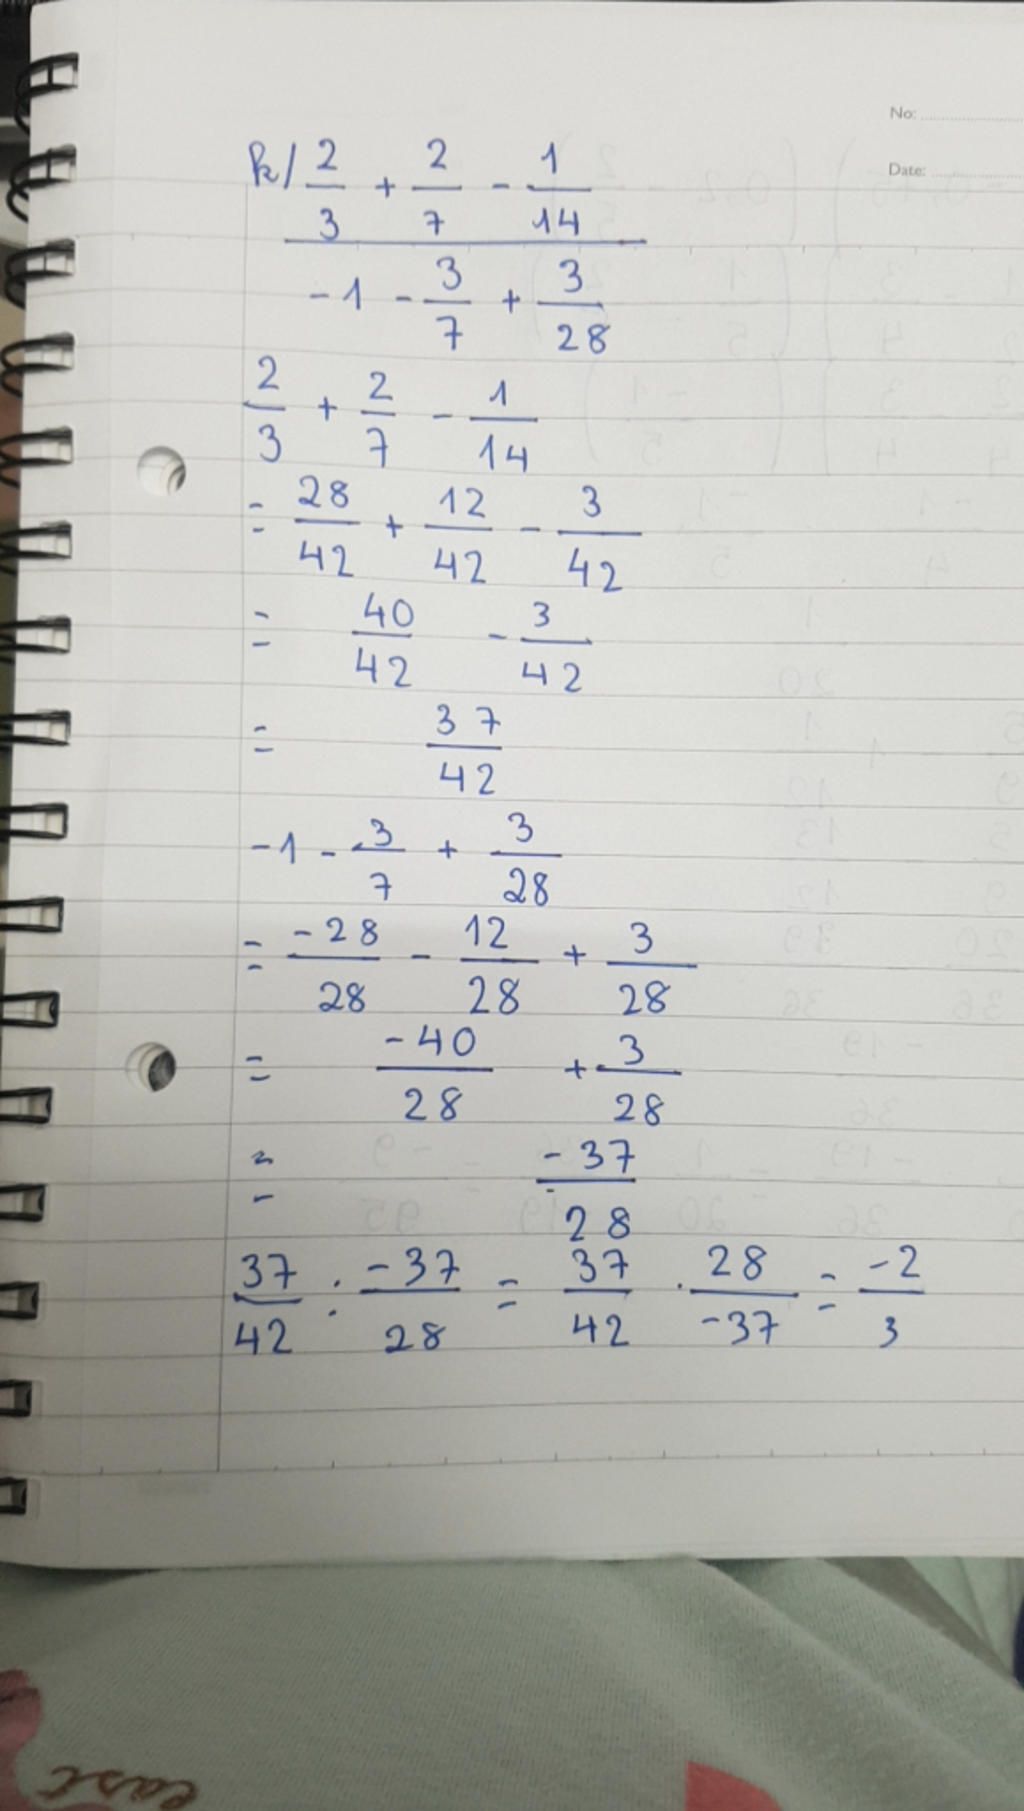 No:
Date:
k/ 2/3 + 2/7 - 1/14
-1 - 3/7 + 3/28
2/3 + 2/7 - 1/14
= 28/42 + 12/42 - 3/42
= 40/42 - 3/42
= 37/42
-1 - 3/7 + 3/28
= -28/28 - 12/28 + 3/28
= -40/28 + 3/28
= -37/28
37/42 : -37/28 = 37/42 . 28/-37 = -2/3